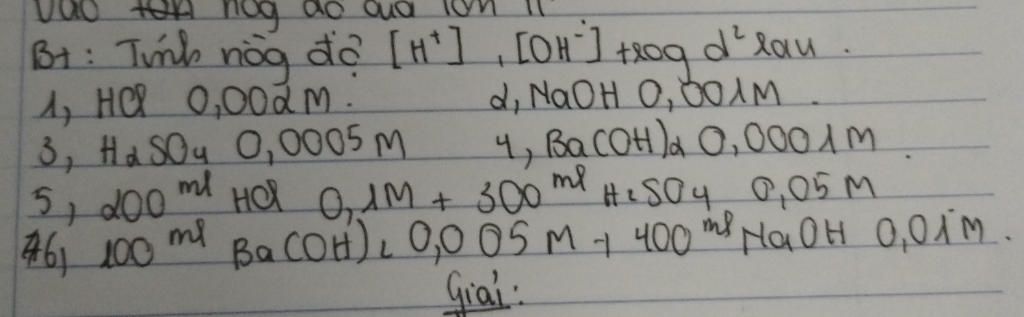 vào nồng độ của ion
BT: Tính nồg độ [H⁺], [OH⁻] trog d² sau.
1, HCl 0,002M. 2, NaOH 0,001M.
3, H₂SO₄ 0,0005M 4, Ba(OH)₂ 0,0001M.
5, 200 ml HCl 0,1M + 300 ml H₂SO₄ 0,05M
6, 100 ml Ba(OH)₂ 0,005M + 400 ml NaOH 0,01M.
Giải: